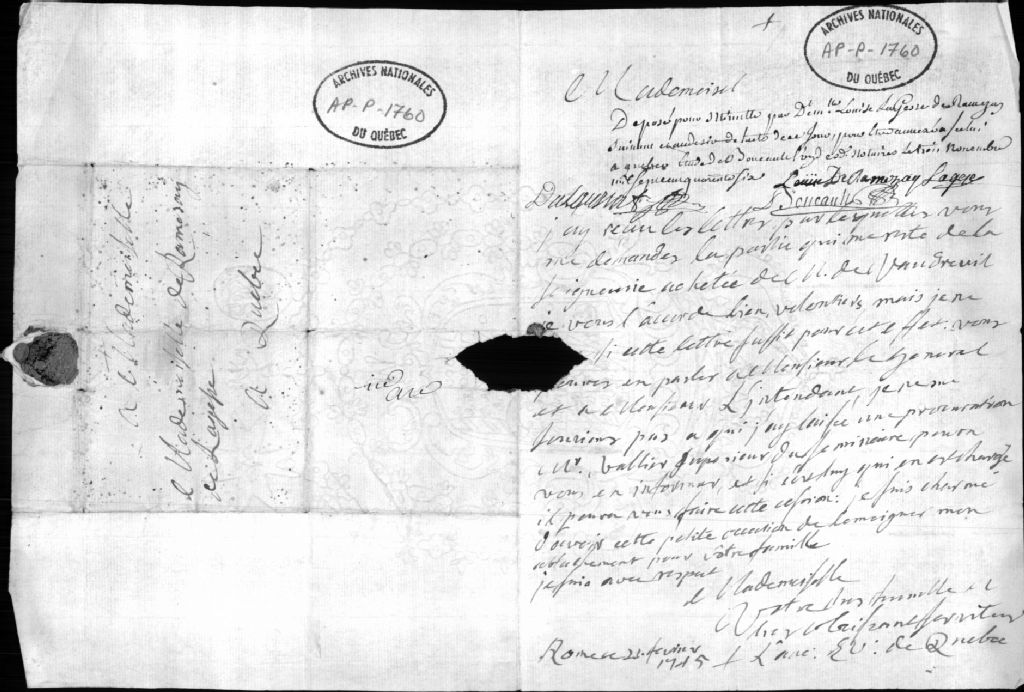 ARCHIVES NATIONALES
AP-P-1760
DU QUÉBEC
ARCHIVES NATIONALES
AP-P-1760
DU QUÉBEC
A Mademoiselle
Mademoiselle de Ramezay
de Lagesse
A Quebec
Mademoisel
Deposé pour minutte par Dem.lle Louise LaGesse de Ramezay
suivant de ce jour, pour
a quebec Notaires le trois Novembre
mil sept cent quarente six
Louise De Ramezay Lagesse
Boucault
j'ay recu les lettres par lesquelles vous
me demandez la partie qui me reste de la
seigneurie achetée de M. de Vaudreuil
je vous l'accorde bien volontiers, mais je ne
si cette lettre suffit pour cet effet: vous
pouvez en parler a Monsieur le General
et a Monsieur L'jntendant, je ne me
souviens pas a qui j'ay laissé une procuration
Mr. Vallier superieur du seminaire poura
vous en informer, et si c'est luy qui en est chargé
il poura vous faire cette cession: je suis charmé
d'avoir cette petite occasion de temoigner mon
attachement pour vôtre famille
je suis avec respect
Mademoiselle
Votre tres humble et
tres obeissant serviteur
† L'anc: Ev: de Quebec
Rome ce fevrier